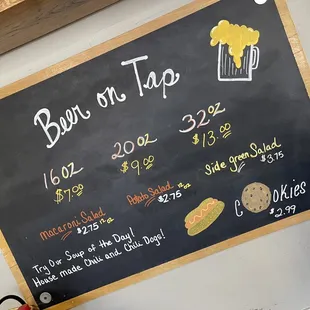 Beer on Tap
16 oz
$7.00
20 oz
$9.00
32 oz
$13.00
Macaroni Salad
$2.75
Potato Salad
$2.75
Side green Salad
$3.75
Cookies
$2.99
Try Our Soup of the Day!
House made Chili and Chili Dogs!